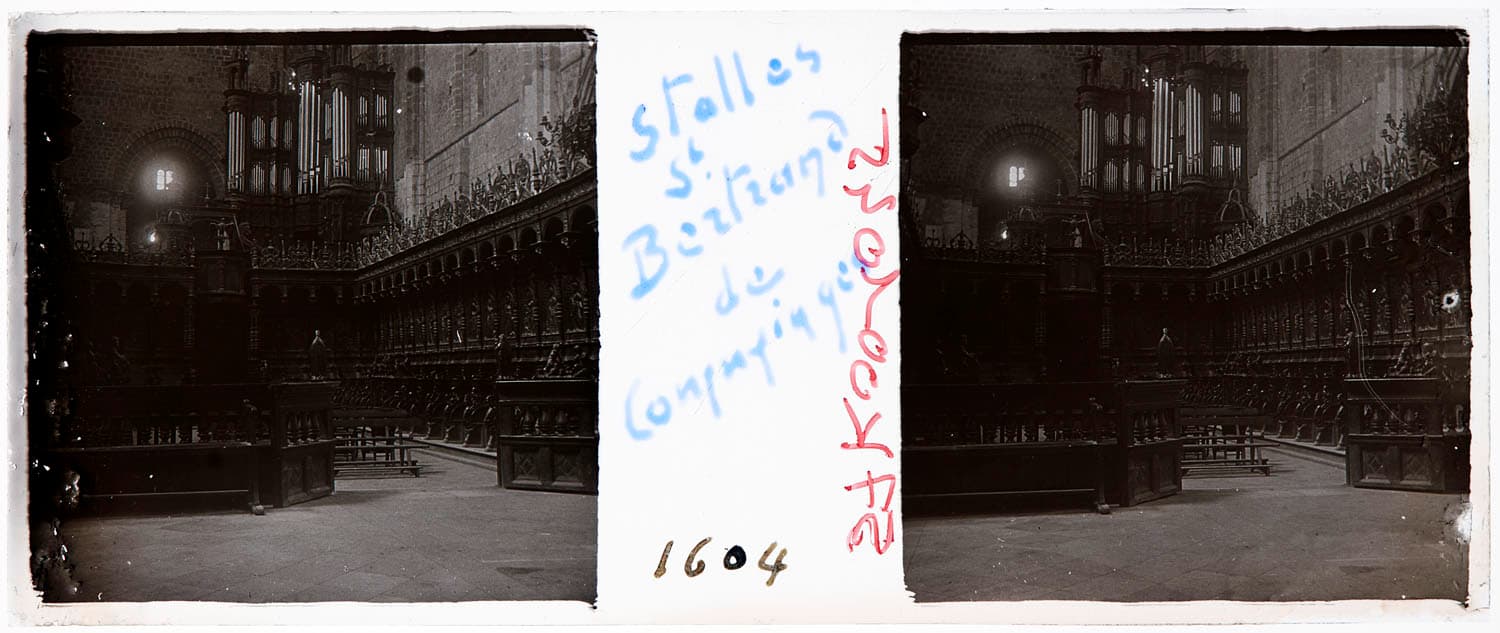 Stalles
St
Bertrand
de
Comminges
1604